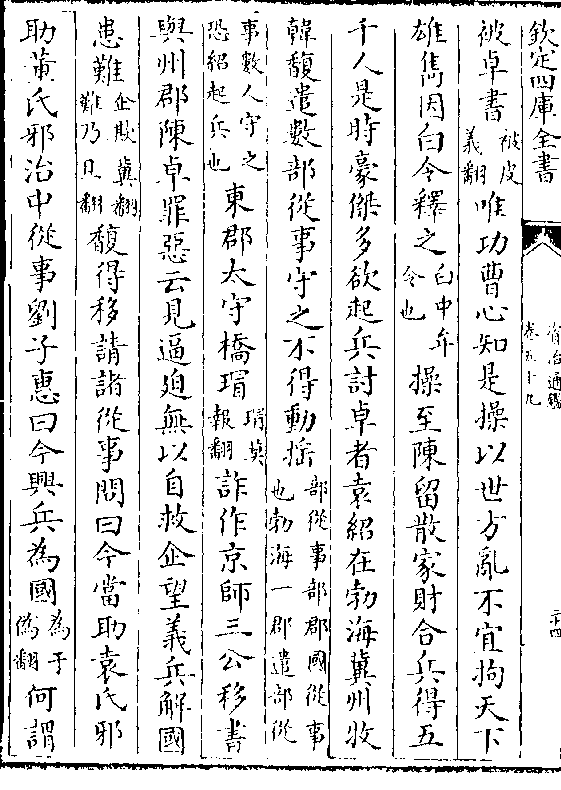 欽定四庫全書
資治通鑑
卷五十九
二十四
被卓書被皮義翻唯功曹心知是操以世方亂不宜拘天下
雄雋因白令釋之白中牟令也操至陳留散家財合兵得五
千人是時豪傑多欲起兵討卓者袁紹在勃海冀州牧
韓馥遣數部從事守之不得動揺部從事部郡國從事也勃海一郡遣部從
事數人守之恐紹起兵也東郡太守橋瑁瑁莫報翻詐作京師三公移書
與州郡陳卓罪惡云見逼迫無以自救企望義兵解國
患難企欺冀翻難乃旦翻馥得移請諸從事問曰今當助袁氏邪
助董氏邪治中從事劉子惠曰今興兵為國為于偽翻何謂